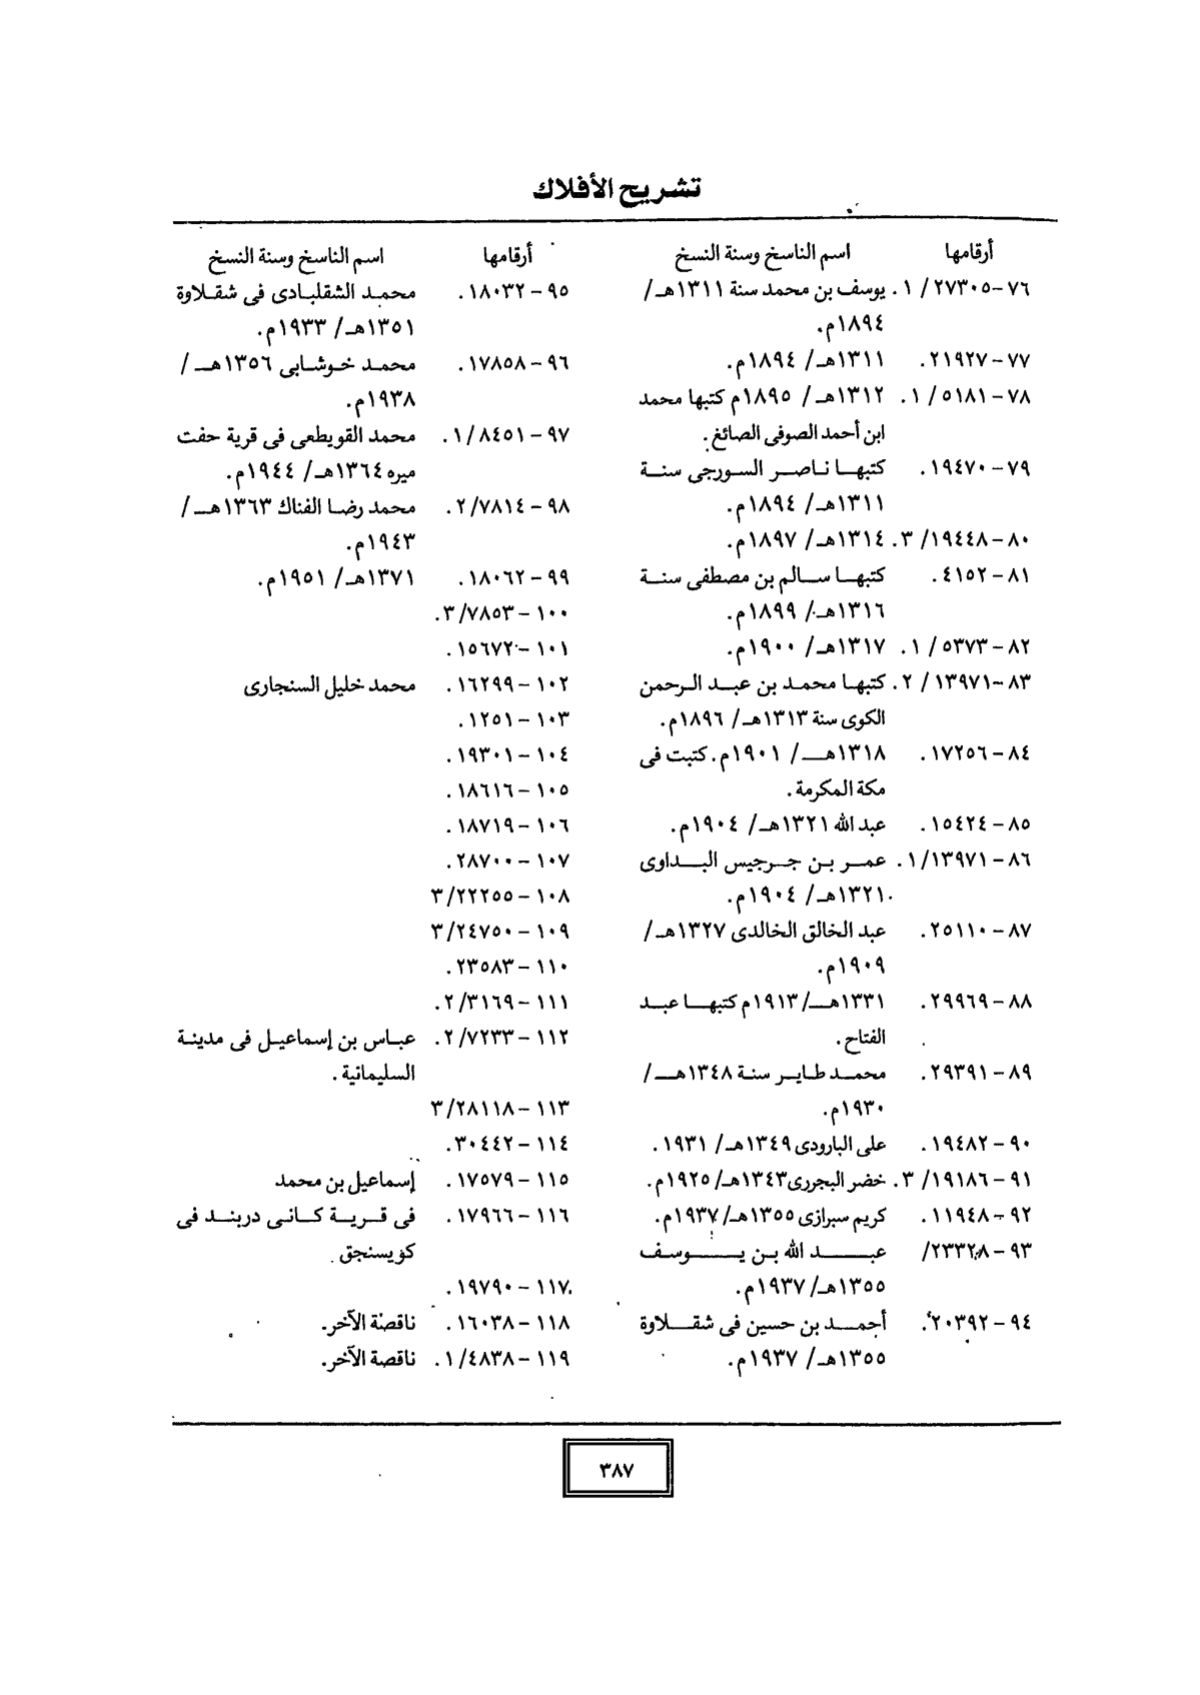 تشريح الأفلاك
أرقامها اسم الناسخ وسنة النسخ
٧٦-٢٧٣٠٥ / ١. يوسف بن محمد سنة ١٣١١هـ/
١٨٩٤م.
٧٧-٢١٩٢٧. ١٣١١هـ/ ١٨٩٤م.
٧٨-٥١٨١ / ١. ١٣١٢هـ/ ١٨٩٥م كتبها محمد
ابن أحمد الصوفى الصائغ.
٧٩-١٩٤٧٠. كتبها ناصر السورجى سنة
١٣١١هـ/ ١٨٩٤م.
٨٠-١٩٤٤٨/ ٣. ١٣١٤هـ/ ١٨٩٧م.
٨١-٤١٥٢. كتبها سالم بن مصطفى سنة
١٣١٦هـ/ ١٨٩٩م.
٨٢-٥٣٧٣ / ١. ١٣١٧هـ/ ١٩٠٠م.
٨٣-١٣٩٧١ / ٢. كتبها محمد بن عبد الرحمن
الكوى سنة ١٣١٣هـ/ ١٨٩٦م.
٨٤-١٧٢٥٦. ١٣١٨هـ/ ١٩٠١م. كتبت فى
مكة المكرمة.
٨٥-١٥٤٢٤. عبد الله ١٣٢١هـ/ ١٩٠٤م.
٨٦-١٣٩٧١/ ١. عمر بن جرجيس البداوى
١٣٢١هـ/ ١٩٠٤م.
٨٧-٢٥١١٠. عبد الخالق الخالدى ١٣٢٧هـ/
١٩٠٩م.
٨٨-٢٩٩٦٩. ١٣٣١هـ/ ١٩١٣م كتبها عبد
الفتاح.
٨٩-٢٩٣٩١. محمد طاير سنة ١٣٤٨هـ/
١٩٣٠م.
٩٠-١٩٤٨٢. على البارودى ١٣٤٩هـ/ ١٩٣١.
٩١-١٩١٨٦/ ٣. خضر البجررى ١٣٤٣هـ/ ١٩٢٥م.
٩٢-١١٩٤٨. كريم سبرازى ١٣٥٥هـ/ ١٩٣٧م.
٩٣-٢٣٣٢٨/ عبد الله بن يوسف
١٣٥٥هـ/ ١٩٣٧م.
٩٤-٢٠٣٩٢. أحمد بن حسين فى شقلاوة
١٣٥٥هـ/ ١٩٣٧م.
أرقامها اسم الناسخ وسنة النسخ
٩٥-١٨٠٣٢. محمد الشقلبادى فى شقلاوة
١٣٥١هـ/ ١٩٣٣م.
٩٦-١٧٨٥٨. محمد خوشابى ١٣٥٦هـ/
١٩٣٨م.
٩٧-٨٤٥١/ ١. محمد القويطعى فى قرية حفت
ميره ١٣٦٤هـ/ ١٩٤٤م.
٩٨-٧٨١٤/ ٢. محمد رضا الفناك ١٣٦٣هـ/
١٩٤٣م.
٩٩-١٨٠٦٢. ١٣٧١هـ/ ١٩٥١م.
١٠٠-٧٨٥٣/ ٣.
١٠١-١٥٦٧٢.
١٠٢-١٦٢٩٩. محمد خليل السنجارى
١٠٣-١٢٥١.
١٠٤-١٩٣٠١.
١٠٥-١٨٦١٦.
١٠٦-١٨٧١٩.
١٠٧-٢٨٧٠٠.
١٠٨-٢٢٢٥٥/ ٣
١٠٩-٢٤٧٥٠/ ٣
١١٠-٢٣٥٨٣.
١١١-٣١٦٩/ ٢.
١١٢-٧٢٣٣/ ٢. عباس بن إسماعيل فى مدينة
السليمانية.
١١٣-٢٨١١٨/ ٣
١١٤-٣٠٤٤٢.
١١٥-١٧٥٧٩. إسماعيل بن محمد
١١٦-١٧٩٦٦. فى قرية كانى دربند فى
كويسنجق.
١١٧-١٩٧٩٠.
١١٨-١٦٠٣٨. ناقصة الآخر.
١١٩-٤٨٣٨/ ١. ناقصة الآخر.
٣٨٧